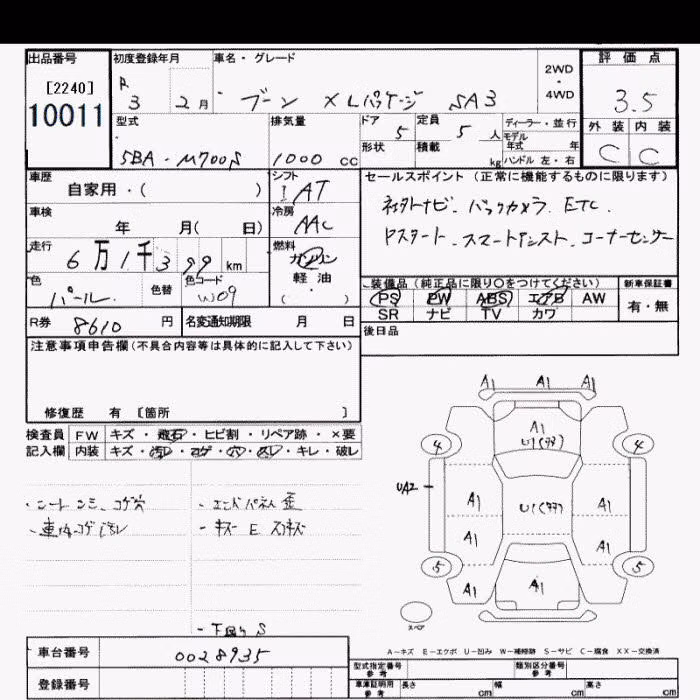 出品番号
[2240]
10011
初度登録年月
R 3 2月
車名・グレード
ブーン X Lパッケージ SA3
2WD
・
4WD
評価点
3.5
外装 内装
C C
型式
5BA-M700S
排気量
1000 cc
ドア
5
形状
定員
5 人
積載
kg
ディーラー・並行
モデル
年式 年
ハンドル 左・右
車歴
自家用・( )
シフト
IAT
車検
年 月( 日)
冷房
AAC
走行
6万1千399km
燃料
ガソリン
軽油
・
( )
色
パール
色替
色コード
W09
R券 8610 円
名変通知期限 月 日
セールスポイント(正常に機能するものに限ります)
社外ナビ.バックカメラ.ETC.
Pスタート.スマートアシスト.コーナーセンサー
装備品(純正品に限り○をつけてください)
PS PW ABS エアB AW
SR ナビ TV カワ
新車保証書
有・無
後日品
注意事項申告欄(不具合内容等は具体的に記入して下さい)
修復歴 有 〔箇所 〕
検査員
記入欄
FW キズ・飛石・ヒビ割・リペア跡・×要
内装 キズ・汚レ・コゲ・穴・スレ・キレ・破レ
・シートシミ.コゲ穴
・車内コゲ汚レ
・エンドパネル歪
・キズ E スリキズ
・下回りS
A1 A1 A1
A1
U1(アタ)
4 4
UA2
A1 U1(アタ) A1
A1 A1
5 5
A1 A1
スペア
A-キズ E-エクボ U-凹み W-補修跡 S-サビ C-腐食 XX-交換済
車台番号 0028935
登録番号
型式指定番号
参考
類別区分番号
参考
車庫証明用
参考
長さ cm 幅 cm 高さ cm